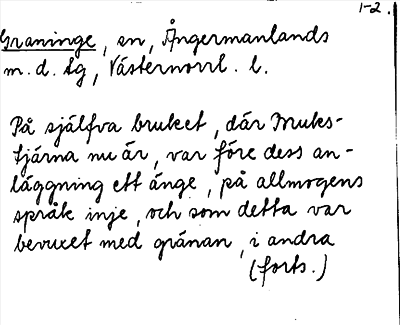 1-2.
Graninge, sn, Ångermanlands
m. d. lg, Västernorrl. l.
På själfva bruket, där Bruks-
tjärna nu är, var före dess an-
läggning ett änge, på allmogens
språk inje, och som detta var
bevuxet med gränan, i andra
(forts.)